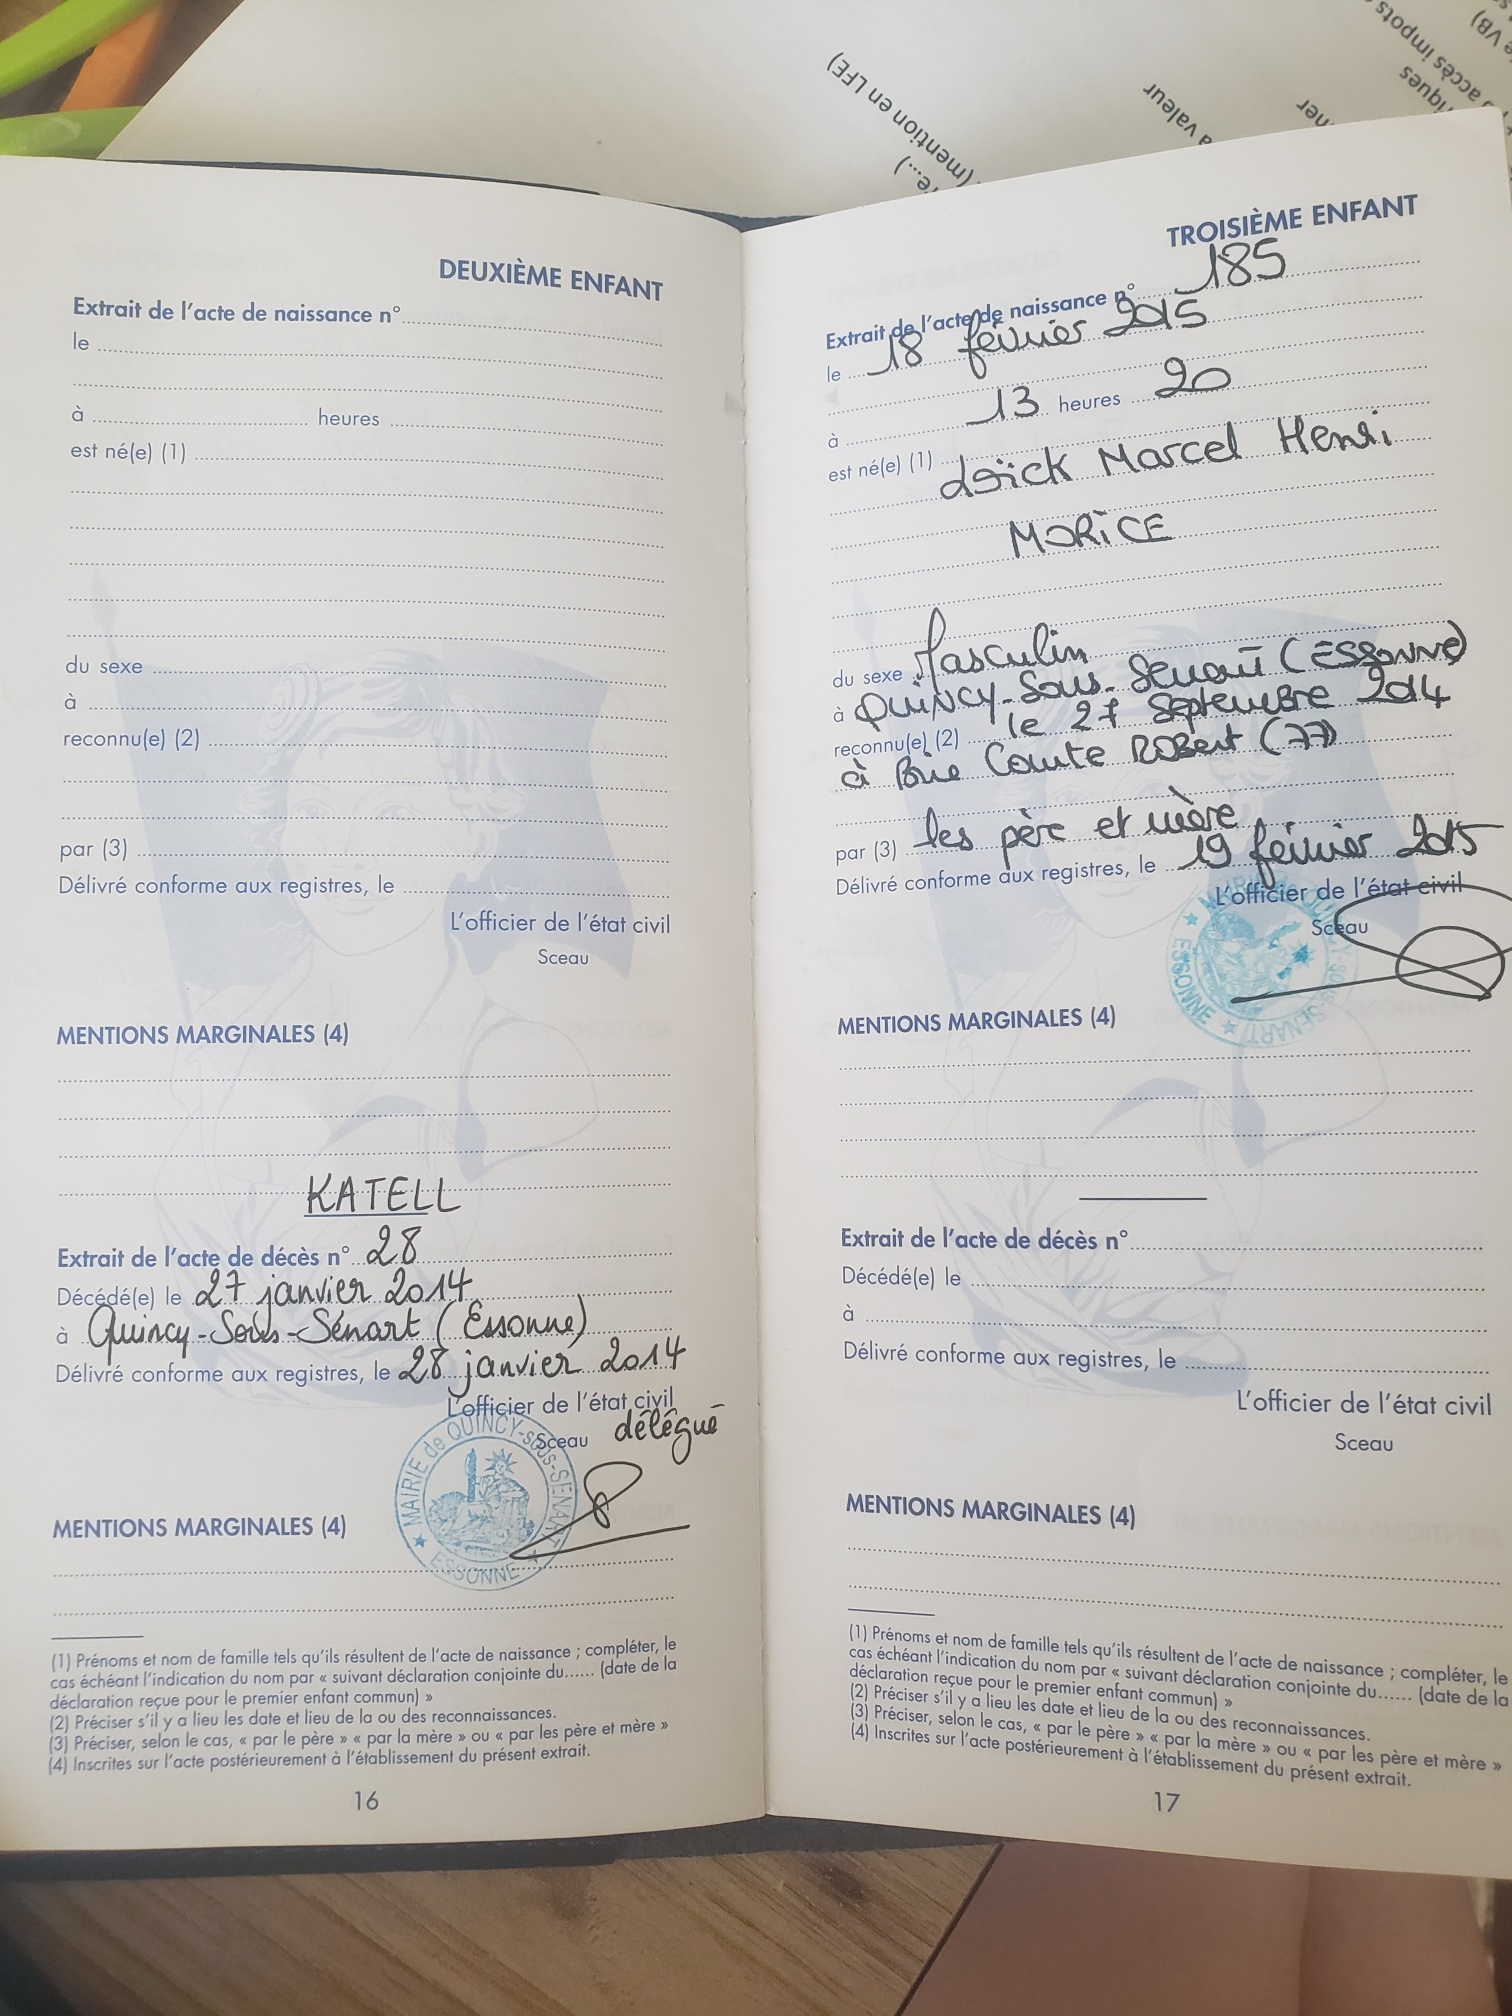 (mention en LFE)
re...)
a valeur
accès impots
DEUXIÈME ENFANT
Extrait de l'acte de naissance n°
le
à heures
est né(e) (1)
du sexe
à
reconnu(e) (2)
par (3)
Délivré conforme aux registres, le
L'officier de l'état civil
Sceau
MENTIONS MARGINALES (4)
KATELL
Extrait de l'acte de décès n° 28
Décédé(e) le 27 janvier 2014
à Quincy-Sous-Sénart (Essonne)
Délivré conforme aux registres, le 28 janvier 2014
L'officier de l'état civil
Sceau délégué
MAIRIE de QUINCY-SOUS-SENART
ESSONNE
MENTIONS MARGINALES (4)
(1) Prénoms et nom de famille tels qu'ils résultent de l'acte de naissance ; compléter, le
cas échéant l'indication du nom par « suivant déclaration conjointe du...... (date de la
déclaration reçue pour le premier enfant commun) »
(2) Préciser s'il y a lieu les date et lieu de la ou des reconnaissances.
(3) Préciser, selon le cas, « par le père » « par la mère » ou « par les père et mère »
(4) Inscrites sur l'acte postérieurement à l'établissement du présent extrait.
16
TROISIÈME ENFANT
Extrait de l'acte de naissance n° 185
le 18 février 2015
à 13 heures 20
est né(e) (1) Loïck Marcel Henri
MORICE
du sexe Masculin
à QUINCY-Sous-Senart (ESSONNE)
reconnu(e) (2) le 27 Septembre 2014
à Brie Comte Robert (77)
par (3) les père et mère
Délivré conforme aux registres, le 19 février 2015
L'officier de l'état civil
Sceau
ESSONNE
MENTIONS MARGINALES (4)
Extrait de l'acte de décès n°
Décédé(e) le
à
Délivré conforme aux registres, le
L'officier de l'état civil
Sceau
MENTIONS MARGINALES (4)
(1) Prénoms et nom de famille tels qu'ils résultent de l'acte de naissance ; compléter, le
cas échéant l'indication du nom par « suivant déclaration conjointe du...... (date de la
déclaration reçue pour le premier enfant commun) »
(2) Préciser s'il y a lieu les date et lieu de la ou des reconnaissances.
(3) Préciser, selon le cas, « par le père » « par la mère » ou « par les père et mère »
(4) Inscrites sur l'acte postérieurement à l'établissement du présent extrait.
17